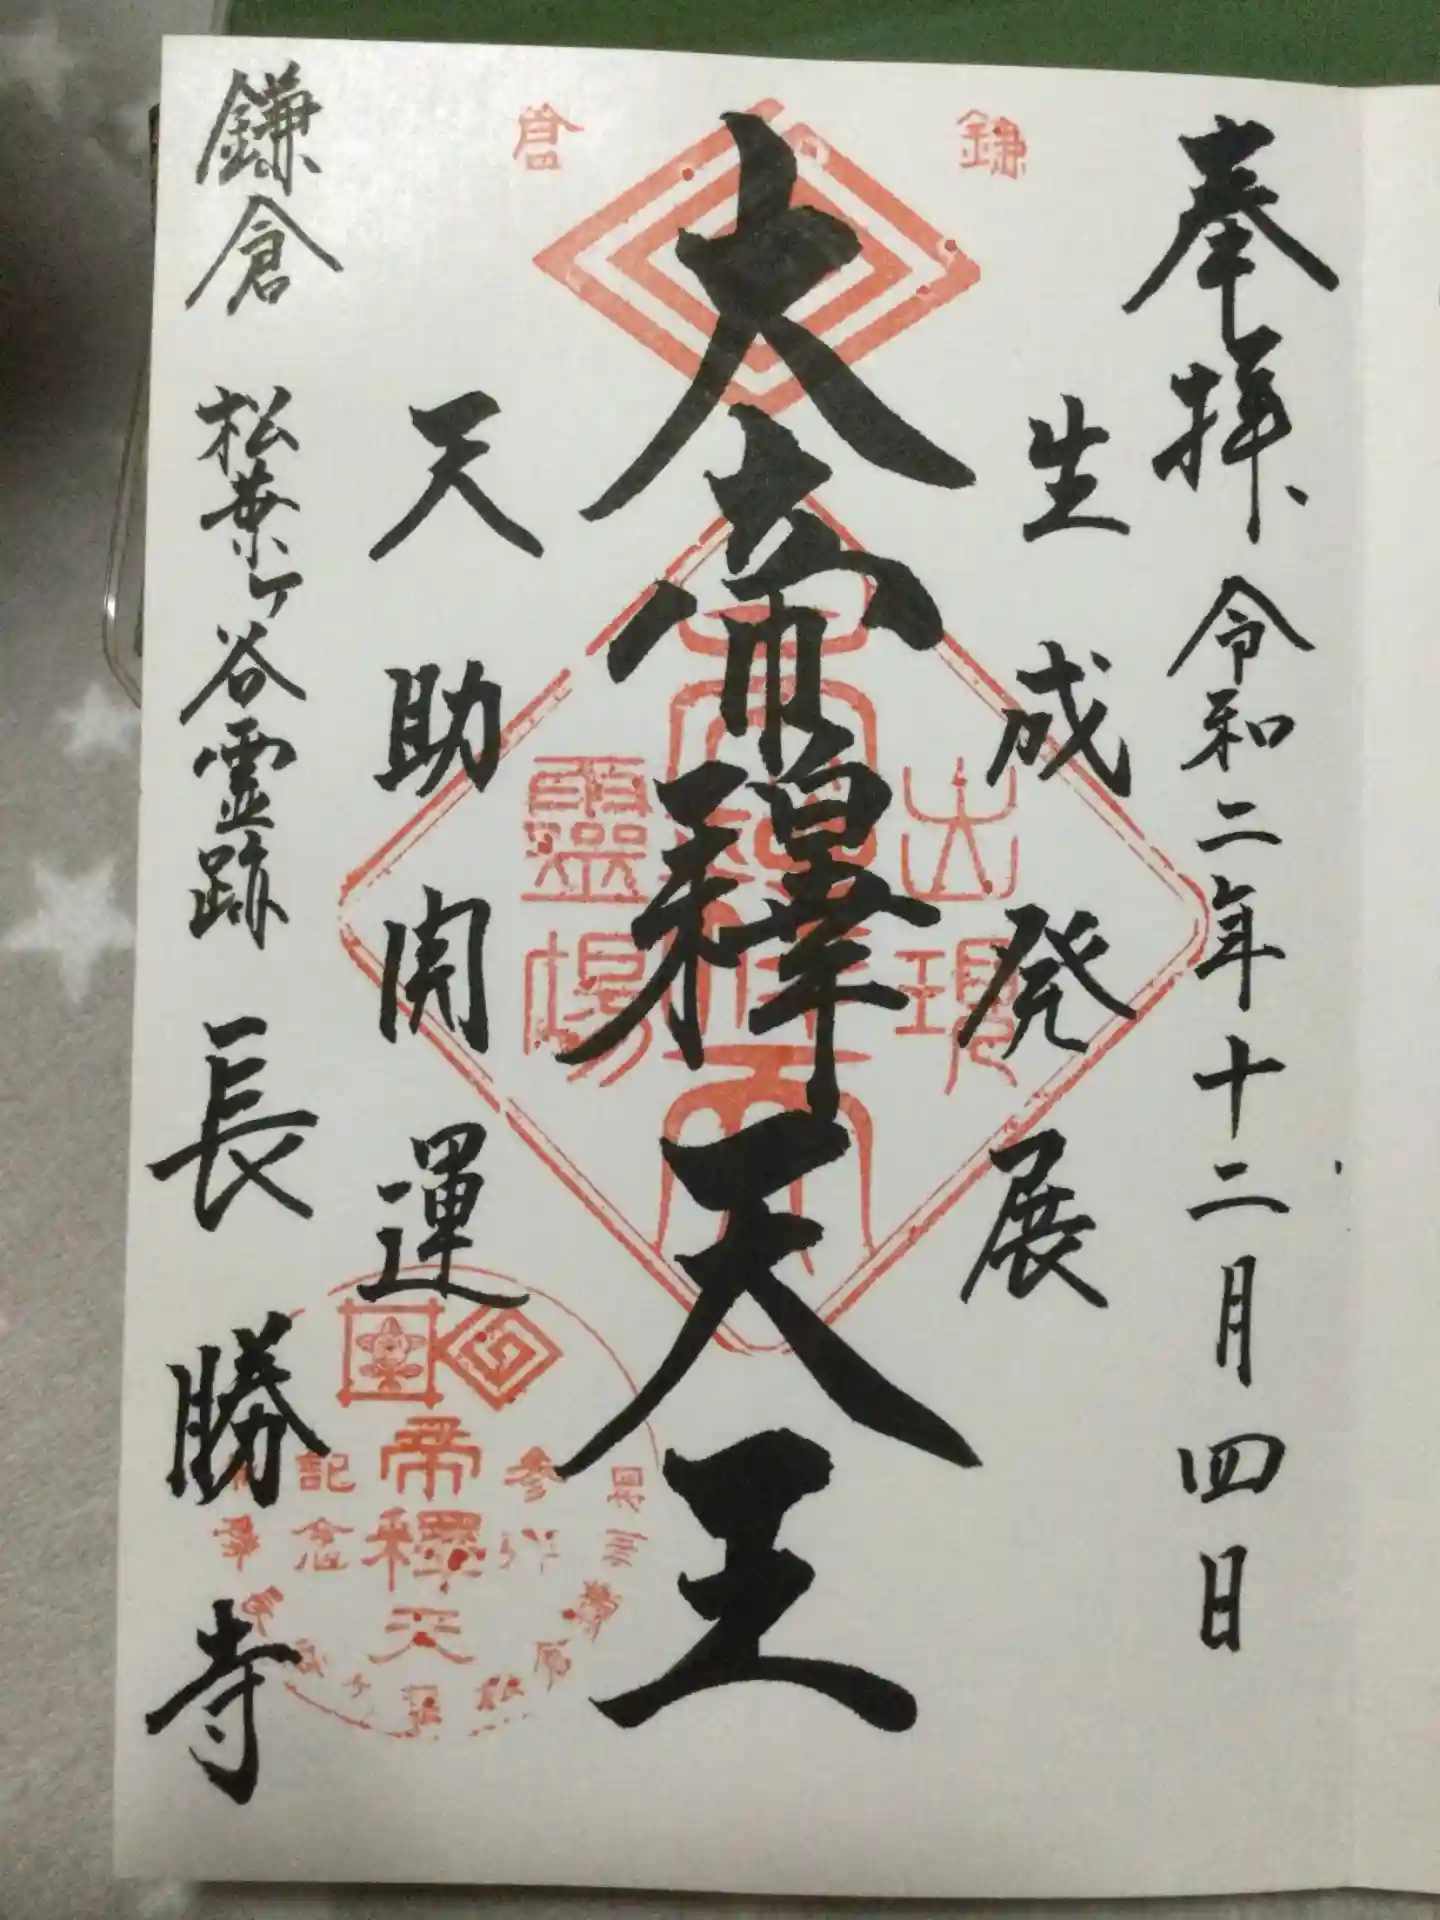 奉拝 令和二年十二月四日
生成発展
大帝釋天王
天助開運
鎌倉 松葉ヶ谷霊跡 長勝寺
鎌倉
出現
靈場
帝釋天
参拝
記念